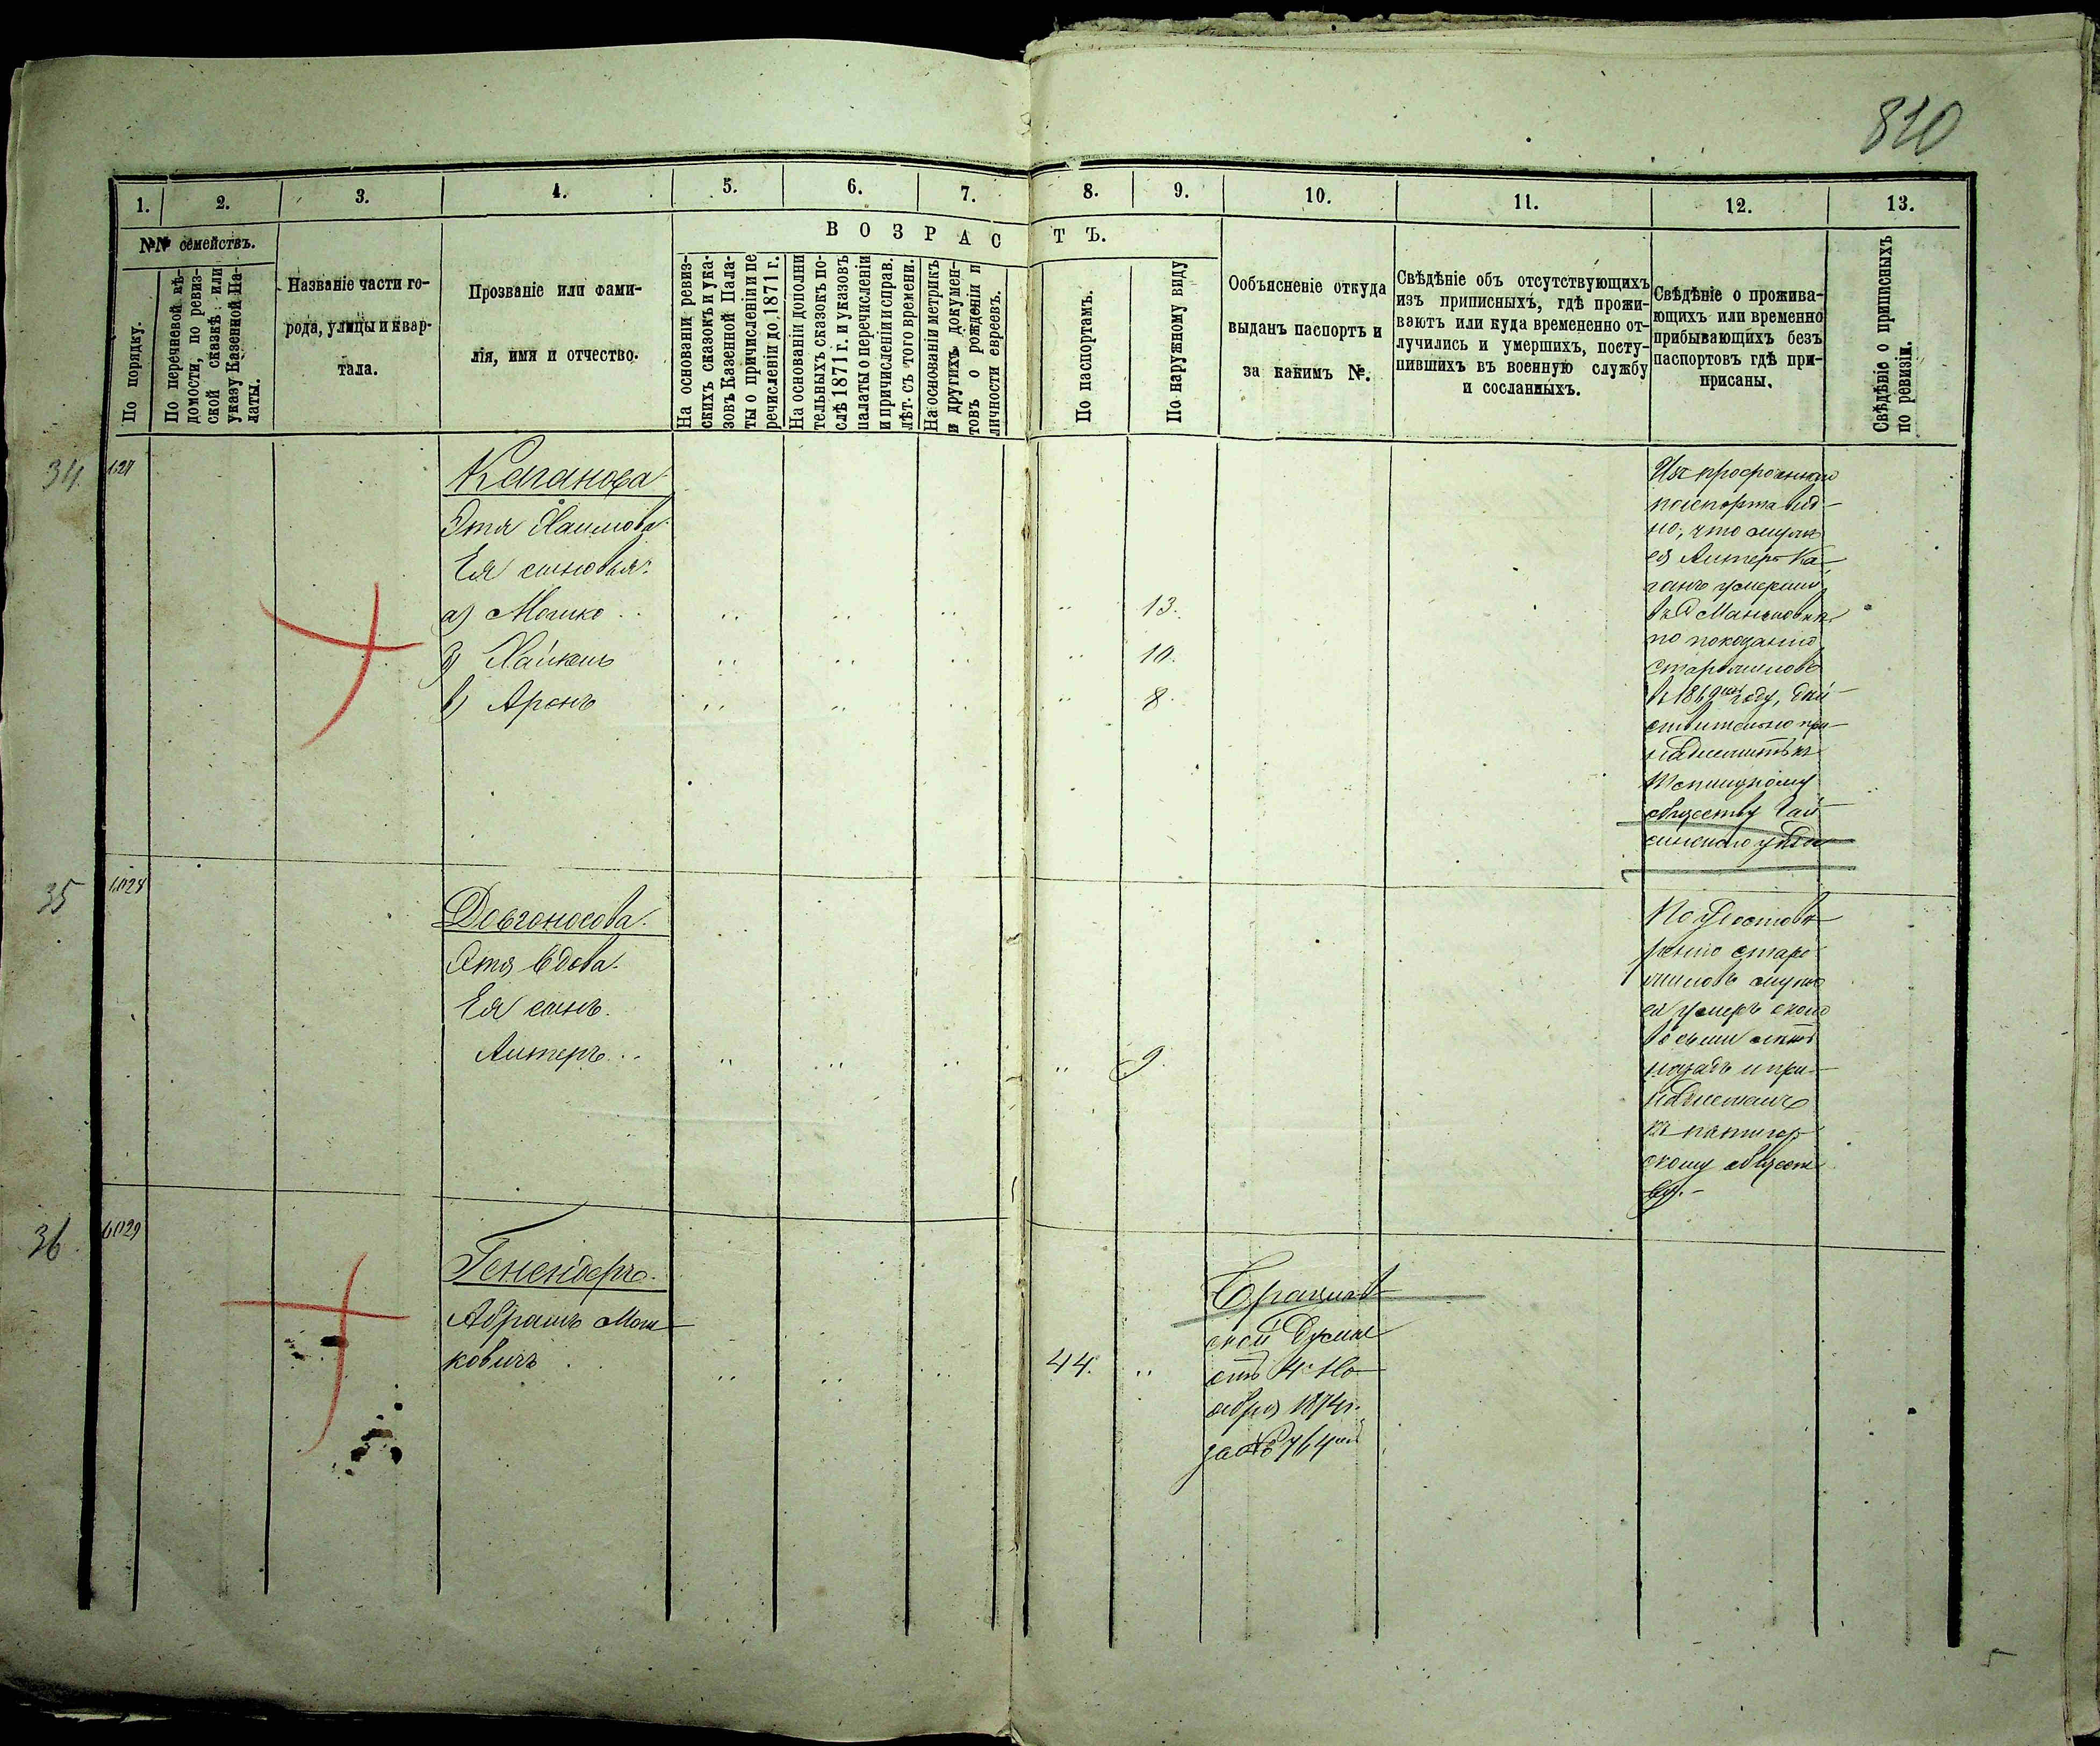 810
1. 2. 3. 4. 5. 6. 7. 8. 9. 10. 11. 12. 13.
№№ семействъ.
В О З Р А С Т Ъ.
По порядку.
По перечневой вѣ-
домости, по ревиз-
ской сказкѣ или
указу Казенной Па-
латы.
Названіе части го-
рода, улицы и квар-
тала.
Прозваніе или фами-
лія, имя и отчество.
На основаніи ревиз-
скихъ сказокъ и ука-
зовъ Казенной Пала-
ты о причисленіи и пе
речисленіи до 1871 г.
На основаніи дополни
тельныхъ сказокъ по-
слѣ 1871 г. и указовъ
палаты о перечисленіи
и причисленіи и справ.
лѣт. съ того времени.
На основаніи метрикъ
и другихъ докумен-
товъ о рожденіи и
личности евреевъ.
По паспортамъ.
По наружному виду
Ообъясненіе откуда
выданъ паспортъ и
за какимъ №.
Свѣдѣніе объ отсутствующихъ
изъ приписныхъ, гдѣ прожи-
ваютъ или куда временно от-
лучились и умершихъ, посту-
пившихъ въ военную службу
и сосланныхъ.
Свѣдѣніе о прожива-
ющихъ или временно
прибывающихъ безъ
паспортовъ гдѣ при-
присаны.
Свѣдѣніе о приписныхъ
по ревизіи.
34
Каганова
Этя Хаимова
Ея сыновья:
а) Мошко
б) Хайкель
в) Аронъ
13.
10.
8.
паспорта вид-
но, что мужъ
ея Алтеръ Ка-
ганъ умершій
по показанію
старожиловъ
въ 1869 году, дѣй-
ствительно при-
надлежитъ къ
обществу Гай-
синскаго уѣзда
35
6028
Довгоносова.
Вдова.
Ея сынъ.
Алтеръ
9.
По удостовѣ-
ренію старо-
жиловъ мужъ
ея умеръ около
восьми лѣтъ
назадъ и при-
надлежалъ
къ пятигор-
скому общест-
ву.-
36.
6029
Генендеръ.
Абрамъ Мош-
ковичъ
44.
Брацлав-
ской Думы
отъ 4 Но-
ября 1874 г.
за №